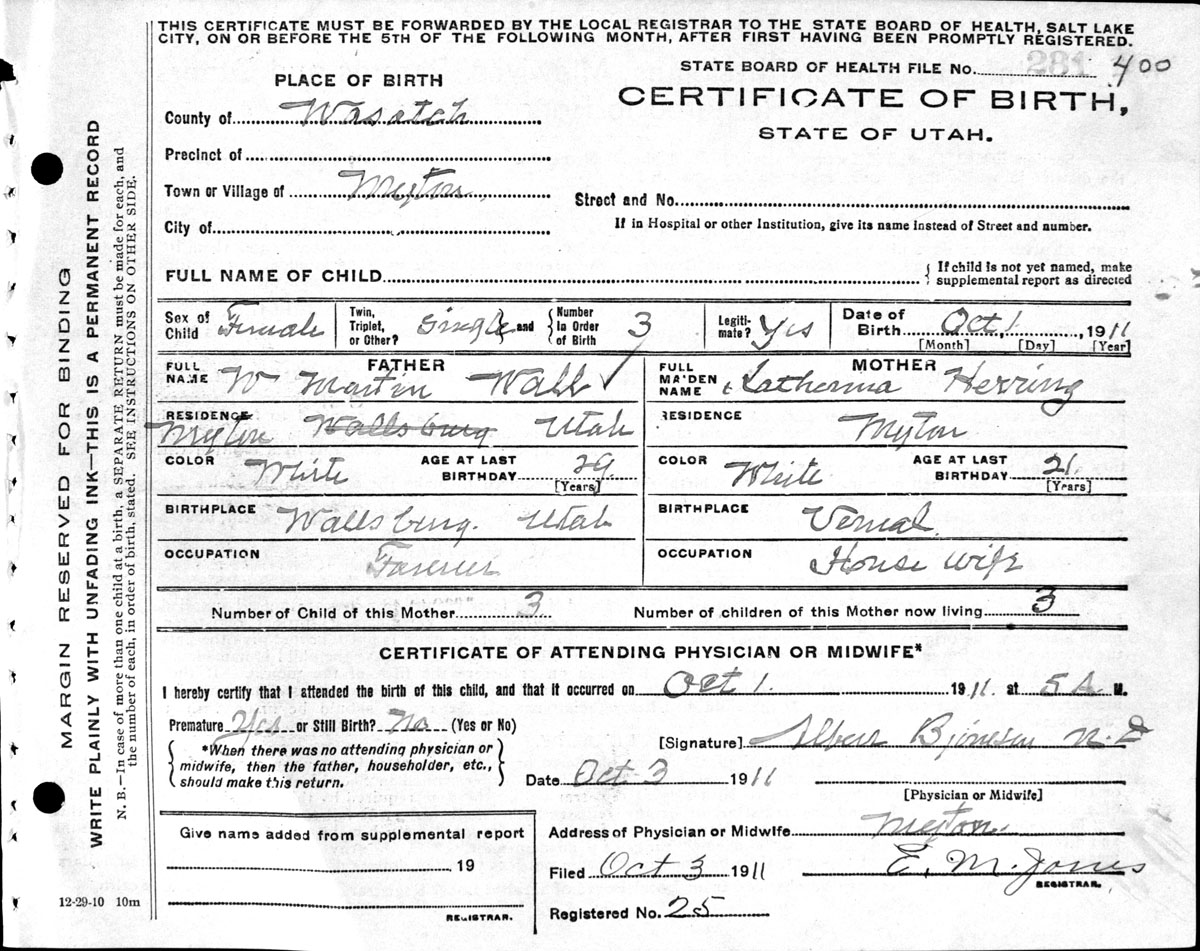 THIS CERTIFICATE MUST BE FORWARDED BY THE LOCAL REGISTRAR TO THE STATE BOARD OF HEALTH, SALT LAKE
CITY, ON OR BEFORE THE 5TH OF THE FOLLOWING MONTH, AFTER FIRST HAVING BEEN PROMPTLY REGISTERED.
STATE BOARD OF HEALTH FILE No. 281 400
PLACE OF BIRTH
CERTIFICATE OF BIRTH,
STATE OF UTAH.
County of Wasatch
Precinct of
Town or Village of Myton
Street and No.
City of
If in Hospital or other Institution, give its name instead of Street and number.
FULL NAME OF CHILD
If child is not yet named, make
supplemental report as directed
Sex of Child Female
Twin, Triplet, or Other? Single and Number in Order of Birth 3
Legiti-mate? Yes
Date of Birth Oct 1. 1911
[Month] [Day] [Year]
FATHER
FULL NAME W Martin Wall
RESIDENCE Myton Wallsburg Utah
COLOR White AGE AT LAST BIRTHDAY 29
[Years]
BIRTHPLACE Wallsburg. Utah
OCCUPATION Farmer
MOTHER
FULL MAIDEN NAME Katherina Herring
RESIDENCE Myton
COLOR White AGE AT LAST BIRTHDAY 21.
[Years]
BIRTHPLACE Vernal
OCCUPATION House wife
Number of Child of this Mother 3 Number of children of this Mother now living 3
CERTIFICATE OF ATTENDING PHYSICIAN OR MIDWIFE*
I hereby certify that I attended the birth of this child, and that it occurred on Oct 1. 1911. at 5 A. M.
Premature Yes or Still Birth? No (Yes or No)
*When there was no attending physician or
midwife, then the father, householder, etc.,
should make this return.
[Signature] Albert
Date Oct 3 1911
[Physician or Midwife]
Give name added from supplemental report
19
REGISTRAR.
Address of Physician or Midwife Myton.
Filed Oct 3 1911 E. M. Jones
REGISTRAR.
Registered No. 25
12-29-10 10m
MARGIN RESERVED FOR BINDING
WRITE PLAINLY WITH UNFADING INK—THIS IS A PERMANENT RECORD
N. B.—In case of more than one child at a birth, a SEPARATE RETURN must be made for each, and
the number of each, in order of birth, stated. SEE INSTRUCTIONS ON OTHER SIDE.